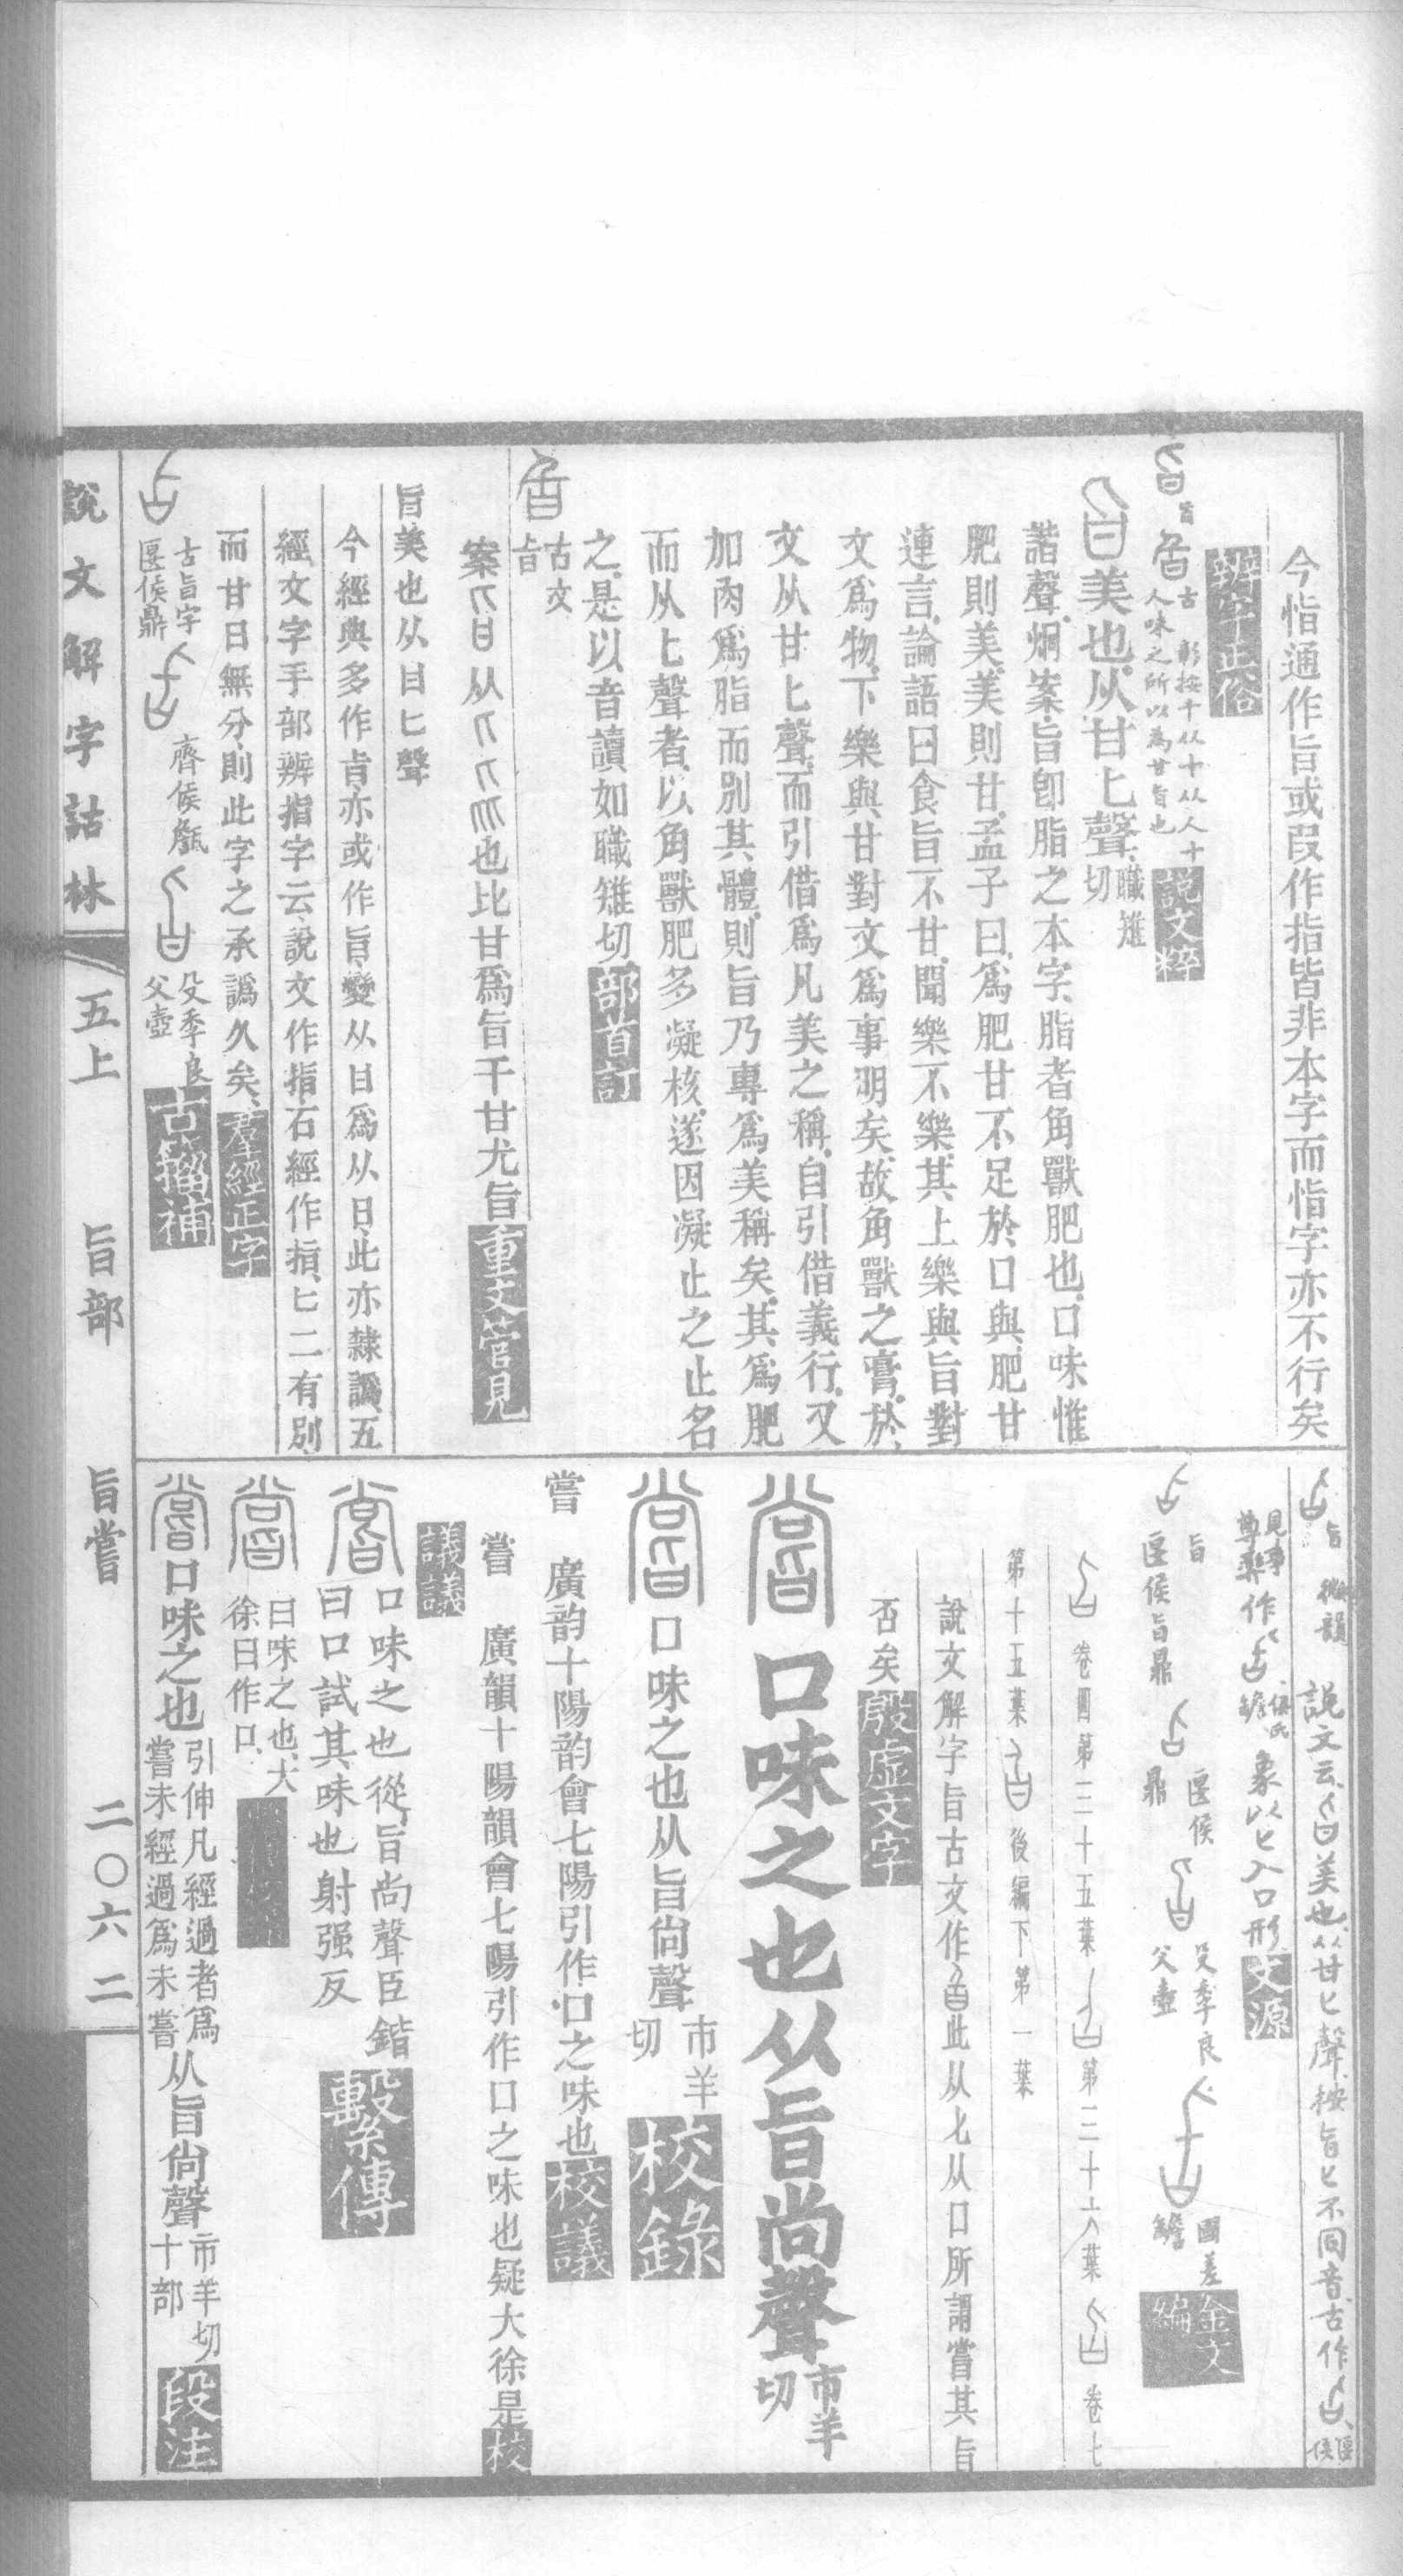 今恉通作旨或叚作指皆非本字而恉字亦不行矣
辨字正俗
旨 古 彰按千从十从人十
人味之所以為甘旨也
說文粹
美也从甘匕聲職雉切
諧聲炯案旨卽脂之本字脂者角獸肥也口味惟
肥則美美則甘孟子曰為肥甘不足於口與肥甘
連言論語曰食旨不甘聞樂不樂其上樂與旨對
文為物下樂與甘對文為事明矣故角獸之膏於
文从甘匕聲而引借為凡美之稱自引借義行又
加肉為脂而別其體則旨乃專為美稱矣其為肥
而从匕聲者以角獸肥多凝核遂因凝止之止名
之是以音讀如職雉切部首訂
古文旨
案
也比甘爲旨千甘尤旨重文管見
旨美也从甘匕聲
今經典多作㫖亦或作旨變从甘爲从日此亦隸譌五
經文字手部辨指字云說文作指石經作指匕二有別
而甘日無分則此字之承譌久矣羣經正字
古旨字匽侯鼎
齊侯甗
殳季良父壺
古籀補
說文解字詁林
五上
旨部
旨嘗
二〇六二
旨 微韻 說文云美也从甘匕聲按旨匕不同音古作匽侯
見事尊彝作 象以匕入口形文源
旨 匽侯旨鼎
匽侯鼎
殳季良父壺
國差𦉜
金文編
卷四第三十五葉 第三十六葉 卷七
第十五葉 後編下第一葉
說文解字旨古文作 此从匕从口所謂嘗其旨
否矣殷虛文字
口味之也从旨尚聲市羊切
口味之也从旨尙聲市羊切校錄
嘗 廣韵十陽韵會七陽引作口之味也校議
嘗 廣韻十陽韻會七陽引作口之味也疑大徐是校
議議
口味之也從旨尚聲臣鍇
曰口試其味也射强反
繫傳
曰味之也大
徐曰作口
口味之也引伸凡經過者爲嘗未經過爲未嘗从旨尙聲市羊切十部段注